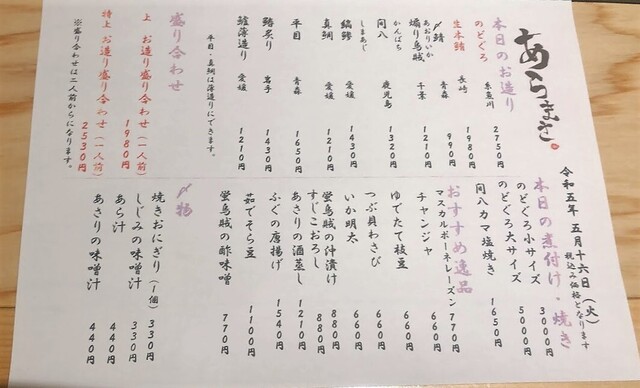 あらまさ
令和五年 五月十六日（火）
税込み価格となります
本日のお造り
のどぐろ 糸魚川 2750円
生本鮪 長崎 1980円
〆鯖 青森 990円
あおりいか
煽り烏賊 千葉 1210円
かんぱち
間八 鹿児島 1320円
しまあじ
縞鰺 愛媛 1430円
真鯛 愛媛 1210円
平目 青森 1650円
鰆炙り 岩手 1430円
鱧薄造り 愛媛 1210円
平目・真鯛は薄造りにできます。
盛り合わせ
上 お造り盛り合わせ（一人前） 1980円
特上 お造り盛り合わせ（一人前） 2530円
※盛り合わせは二人前からになります。
本日の煮付け・焼き
のどぐろ小サイズ 3000円
のどぐろ大サイズ 5000円
間八カマ塩焼き 1650円
おすすめ逸品
マスカルポーネレーズン 770円
チャンジャ 660円
ゆでたて枝豆 660円
つぶ貝わさび 660円
いか明太 660円
蛍烏賊の沖漬け 880円
すじこおろし 880円
あさりの酒蒸し 1210円
ふぐの唐揚げ 1540円
茹でそら豆 1100円
蛍烏賊の酢味噌 770円
〆物
焼きおにぎり（1個） 330円
しじみの味噌汁 330円
あら汁 440円
あさりの味噌汁 440円